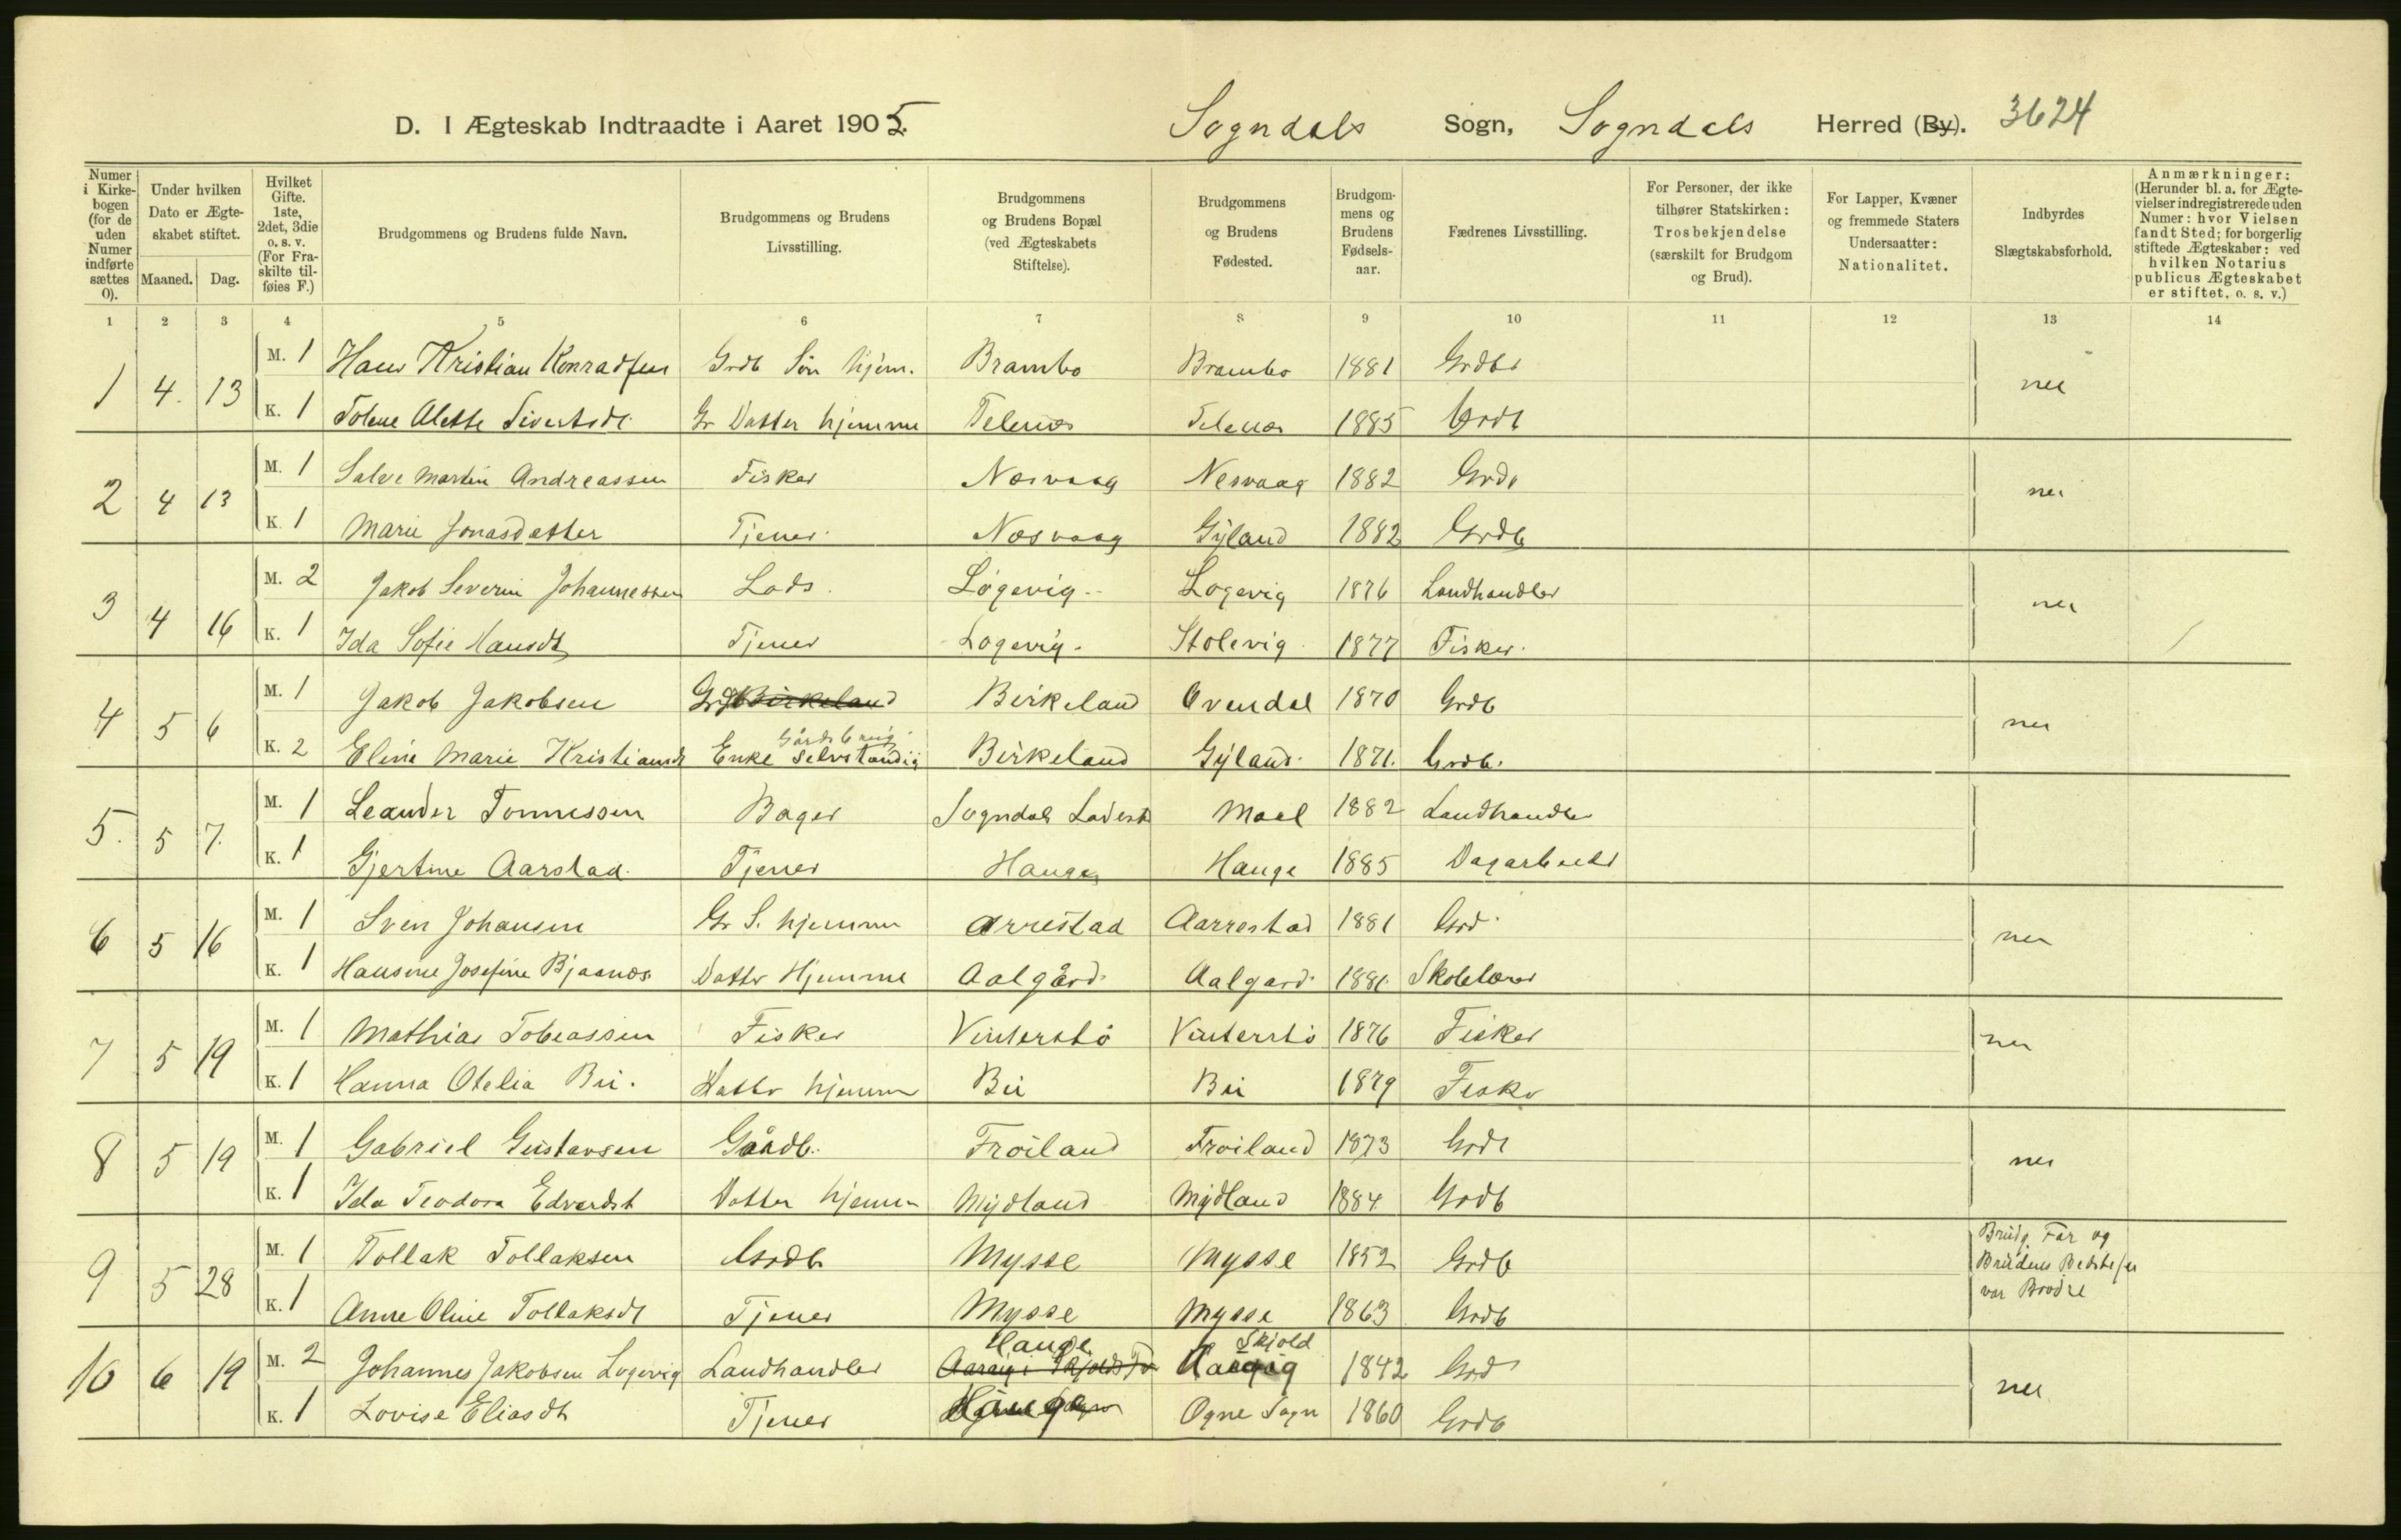 D. I Ægteskab Indtraadte i Aaret 1905. Sogndals Sogn, Sogndals Herred (By). 3624
Numer i Kirkebogen (for de uden Numer indførte sættes 0).
Under hvilken Dato er Ægteskabet stiftet. Maaned. Dag.
Hvilket Gifte. 1ste, 2det, 3die o. s. v. (For Fraskilte tilføies F.)
Brudgommens og Brudens fulde Navn.
Brudgommens og Brudens Livsstilling.
Brudgommens og Brudens Bopæl (ved Ægteskabets Stiftelse).
Brudgommens og Brudens Fødested.
Brudgommens og Brudens Fødselsaar.
Fædrenes Livsstilling.
For Personer, der ikke tilhører Statskirken: Trosbekjendelse (særskilt for Brudgom og Brud).
For Lapper, Kvæner og fremmede Staters Undersaatter: Nationalitet.
Indbyrdes Slægtskabsforhold.
Anmærkninger: (Herunder bl. a. for Ægtevielser indregistrerede uden Numer: hvor Vielsen fandt Sted; for borgerlig stiftede Ægteskaber: ved hvilken Notarius publicus Ægteskabet er stiftet, o. s. v.)
1 2 3 4 5 6 7 8 9 10 11 12 13 14
1 4. 13 M. 1 Hans Kristian Konradsen Grdb Søn hjem. Brambo Brambo 1881 Grdbr nei
K. 1 Tolene Alette Sivertsdt. Gr Datter hjemme Telenæs Telenæs 1885 Grdb
2 4 13 M. 1 Salve Martin Andreassen Fisker Næsvaag Nesvaag 1882 Grdb nei
K. 1 Marie Jonasdatter Tjener Næsvaag Gyland 1882 Grdb
3 4 16 M. 2 Jakob Severin Johannessen Lods. Løgevig Logevig 1876 Landhandler nei
K. 1 Ida Sofie Hansdt Tjener Logevig Stolevig 1877 Fisker.
4 5 6 M. 1 Jakob Jakobsen Grdb Birkeland Birkeland Ovendal 1870 Grdb nei
K. 2 Eline Marie Kristiansdt Enke Gårdbrug Selvstændig Birkeland Gyland 1871. Grdb.
5. 5 7. M. 1 Leander Tonnessen Bager Sogndals Ladest Moel 1882 Landhandler
K. 1 Gjertine Aarstad Tjener Hauge Hauge 1885 Dagarbeider
6 5 16 M. 1 Sven Johansen Gr S. hjemme Arrestad Aarrestad 1881 Grd nei
K. 1 Hansine Josefine Bjaanæs Datter Hjemme Aalgård Aalgard 1881 Skolelærer
7 5 19 M. 1 Mathias Tobiassen Fisker Vinterstø Vinterstø 1876 Fisker nei
K. 1 Hanna Otelia Bu. Datter hjemme Bu Bu 1879 Fisker
8 5 19 M. 1 Gabriel Gustavsen Gårdb. Frøiland Frøiland 1873 Grdb nei
K. 1 Ida Teodora Edvardsdt Datter hjemme Mydland Mydland 1884. Grdb
9 5 28 M. 1 Tollak Tollaksen Grdb Mysse Mysse 1852 Grdb Brudg. Far og
Brudens Bedstefar
K. 1 Anne Oline Tollaksdt Tjener Mysse Mysse 1863 Grdb var Brødre
10 6 19 M. 2 Johannes Jakobsen Logevig Landhandler Hauge Skjold 1842 Grd nei
K. 1 Lovise Eliasdt Tjener Hauge Ogne Sogn 1860 Grdb